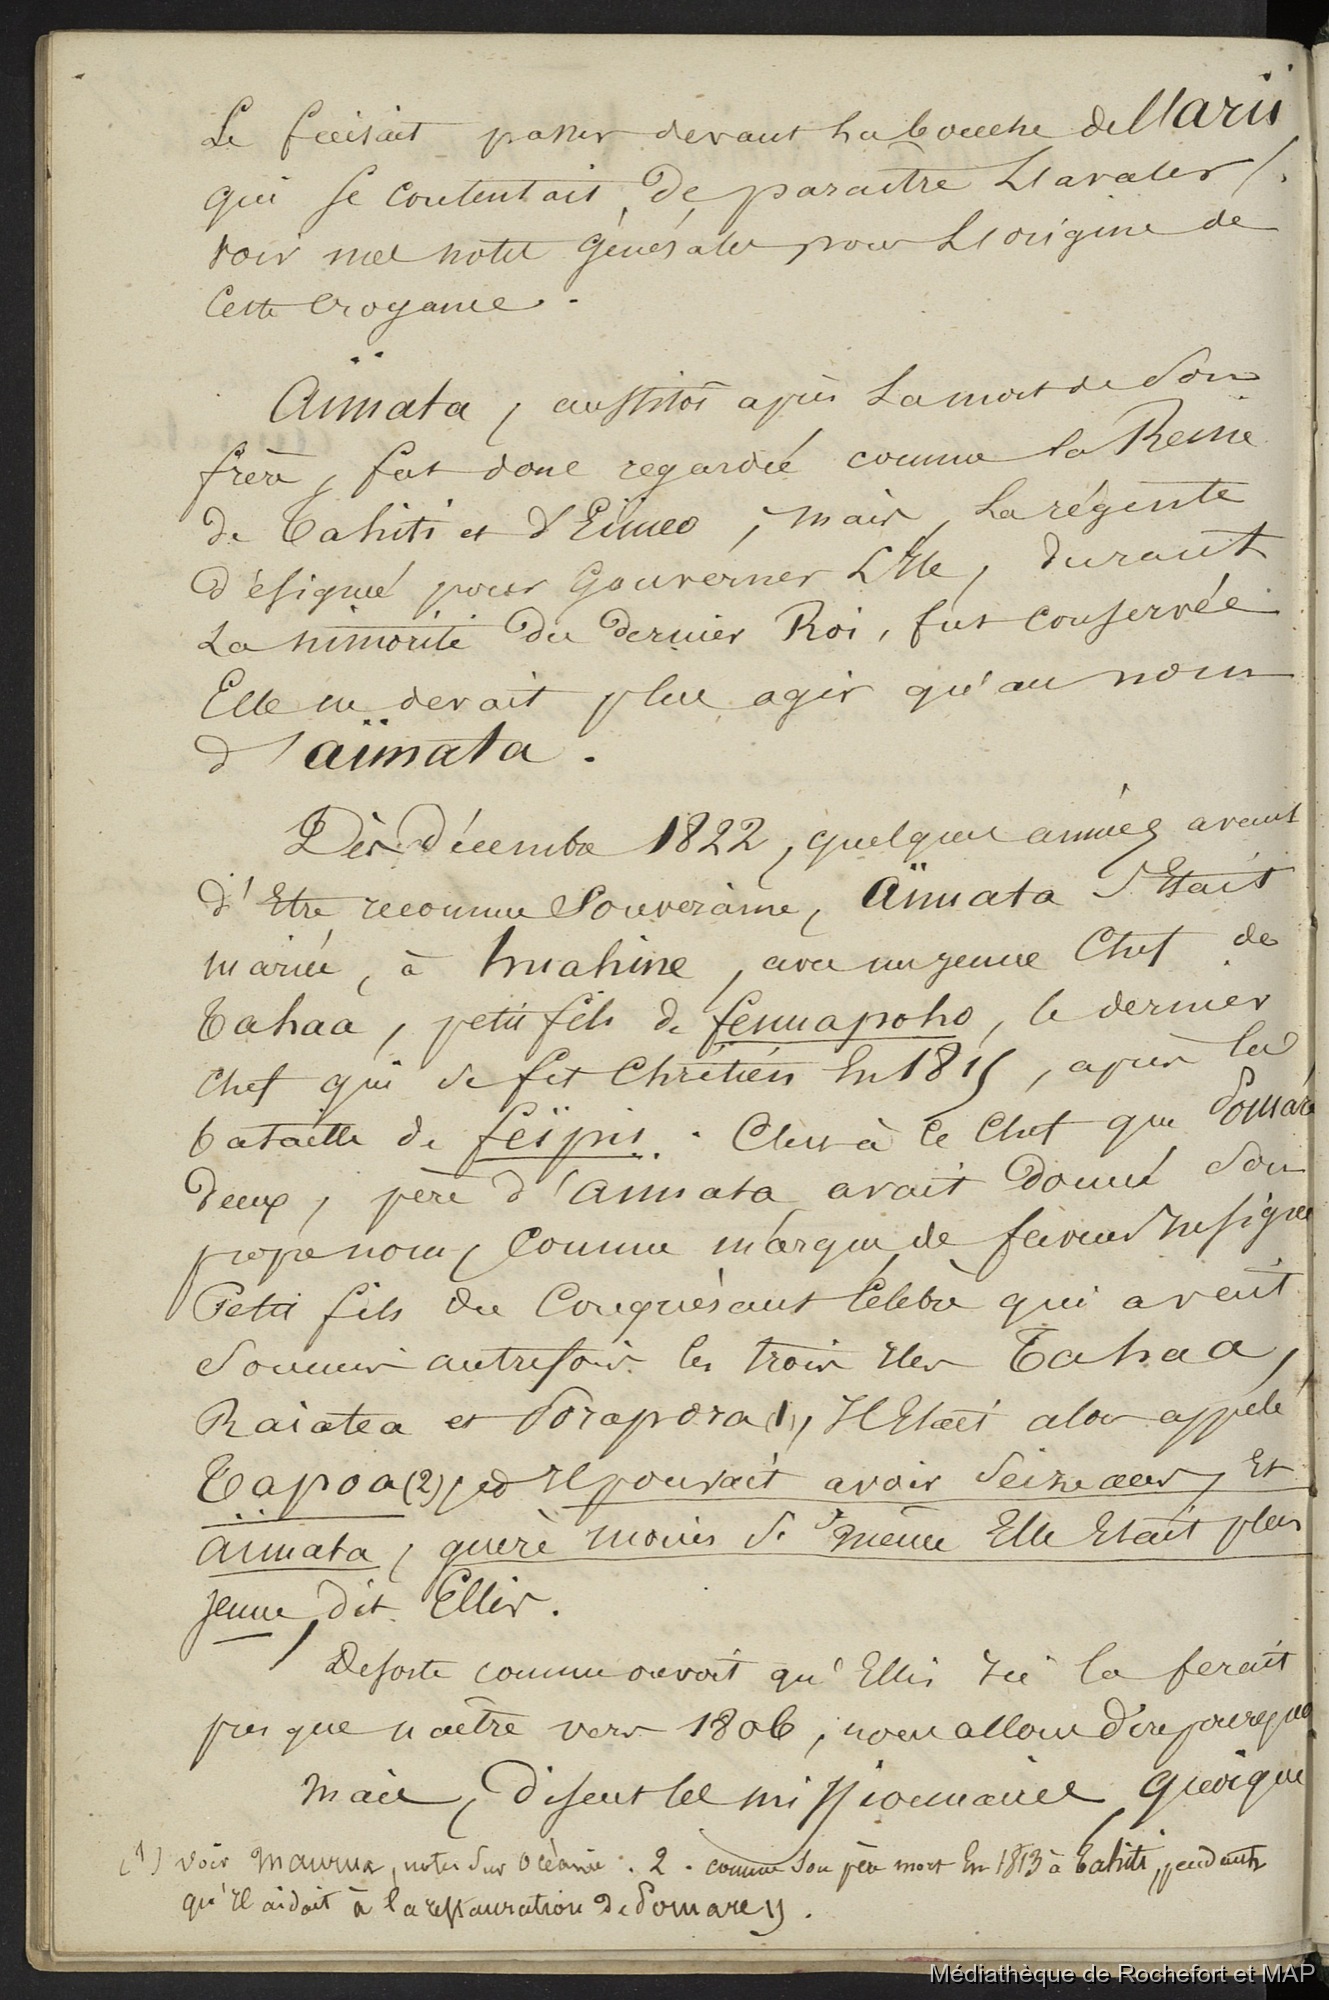 Le faisait passer devant la bouche de Marii
qui se contentait de paraitre L'avaler /.
voir mes notes Générales pour L'origine de
Cette croyance.
Aïmata, aussitôt après La mort de Son
frère, fut donc regardée comme la Reine
de Tahiti et d'Eimeo, mais, La régente
désignée pour Gouverner L'Ile, durant
La minorité du dernier Roi, fut conservée
Elle ne devait plus agir qu'au nom
d'aïmata.
Dès décembre 1822, quelques années avant
d'Etre reconnue Souveraine, Aïmata s'Etait
mariée, à huahine, avec un jeune Chef de
Tahaa, petit fils de fenuapoho, le dernier
chef qui se fit Chrétien En 1815, après la
bataille de feïpii. C'est à ce Chef que Pomare
deux, père d'aïmata avait donné Son
propre nom, comme marque de faveur insigne
Petit fils du Conquérant Célèbre qui avait
Soumis autrefois les trois Iles Tahaa,
Raiatea et Porapora (1), Il Etait alors appelé
Tapoa (2), et Il pouvait avoir Seize ans, Et
aïmata, guère moins Si même Elle Etait plus
jeune, dit Ellis.
De sorte comme on voit qu'Ellis ici la ferait
presque naître vers 1806, nous allons dire pourquoi
Mais, disent les missionnaires, quoique
(1) voir Maurua, notes sur Océanie. 2. comme Son père mort En 1813 à Tahiti, pendant
qu'Il aidait à la restauration de Pomare II.
Médiathèque de Rochefort et MAP